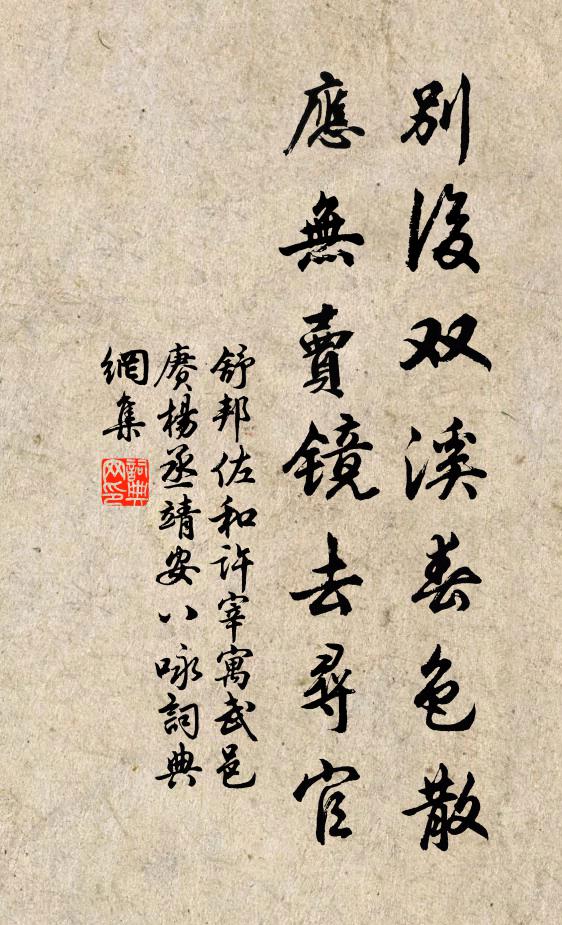 別後双溪春色散
應無賣鏡去尋官
舒邦佐和許宰寓武邑
賡楊丞靖安八咏詞典
網集
詞典
网印